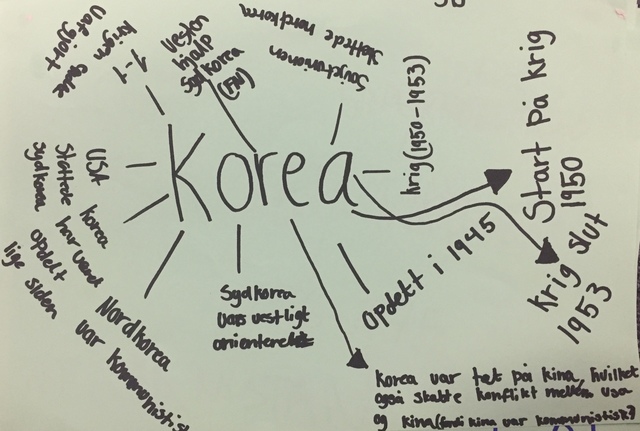 krigen endte
uafgjort
1-1
Vesten
hjalp
Sydkorea
(FN)
Sovjetunionen
støttede nordkorea
krig (1950-1953)
Start på krig
1950
Krig slut
1953
Korea
USA
støttede
Sydkorea
korea
har været
opdelt
lige siden
Nordkorea
var kommunistisk
Sydkorea
vars vestligt
orienterede
opdelt i 1945
Korea var tæt på kina, hvilket
også skabte konflikt mellem usa
og kina (fordi kina var kommunistisk?)